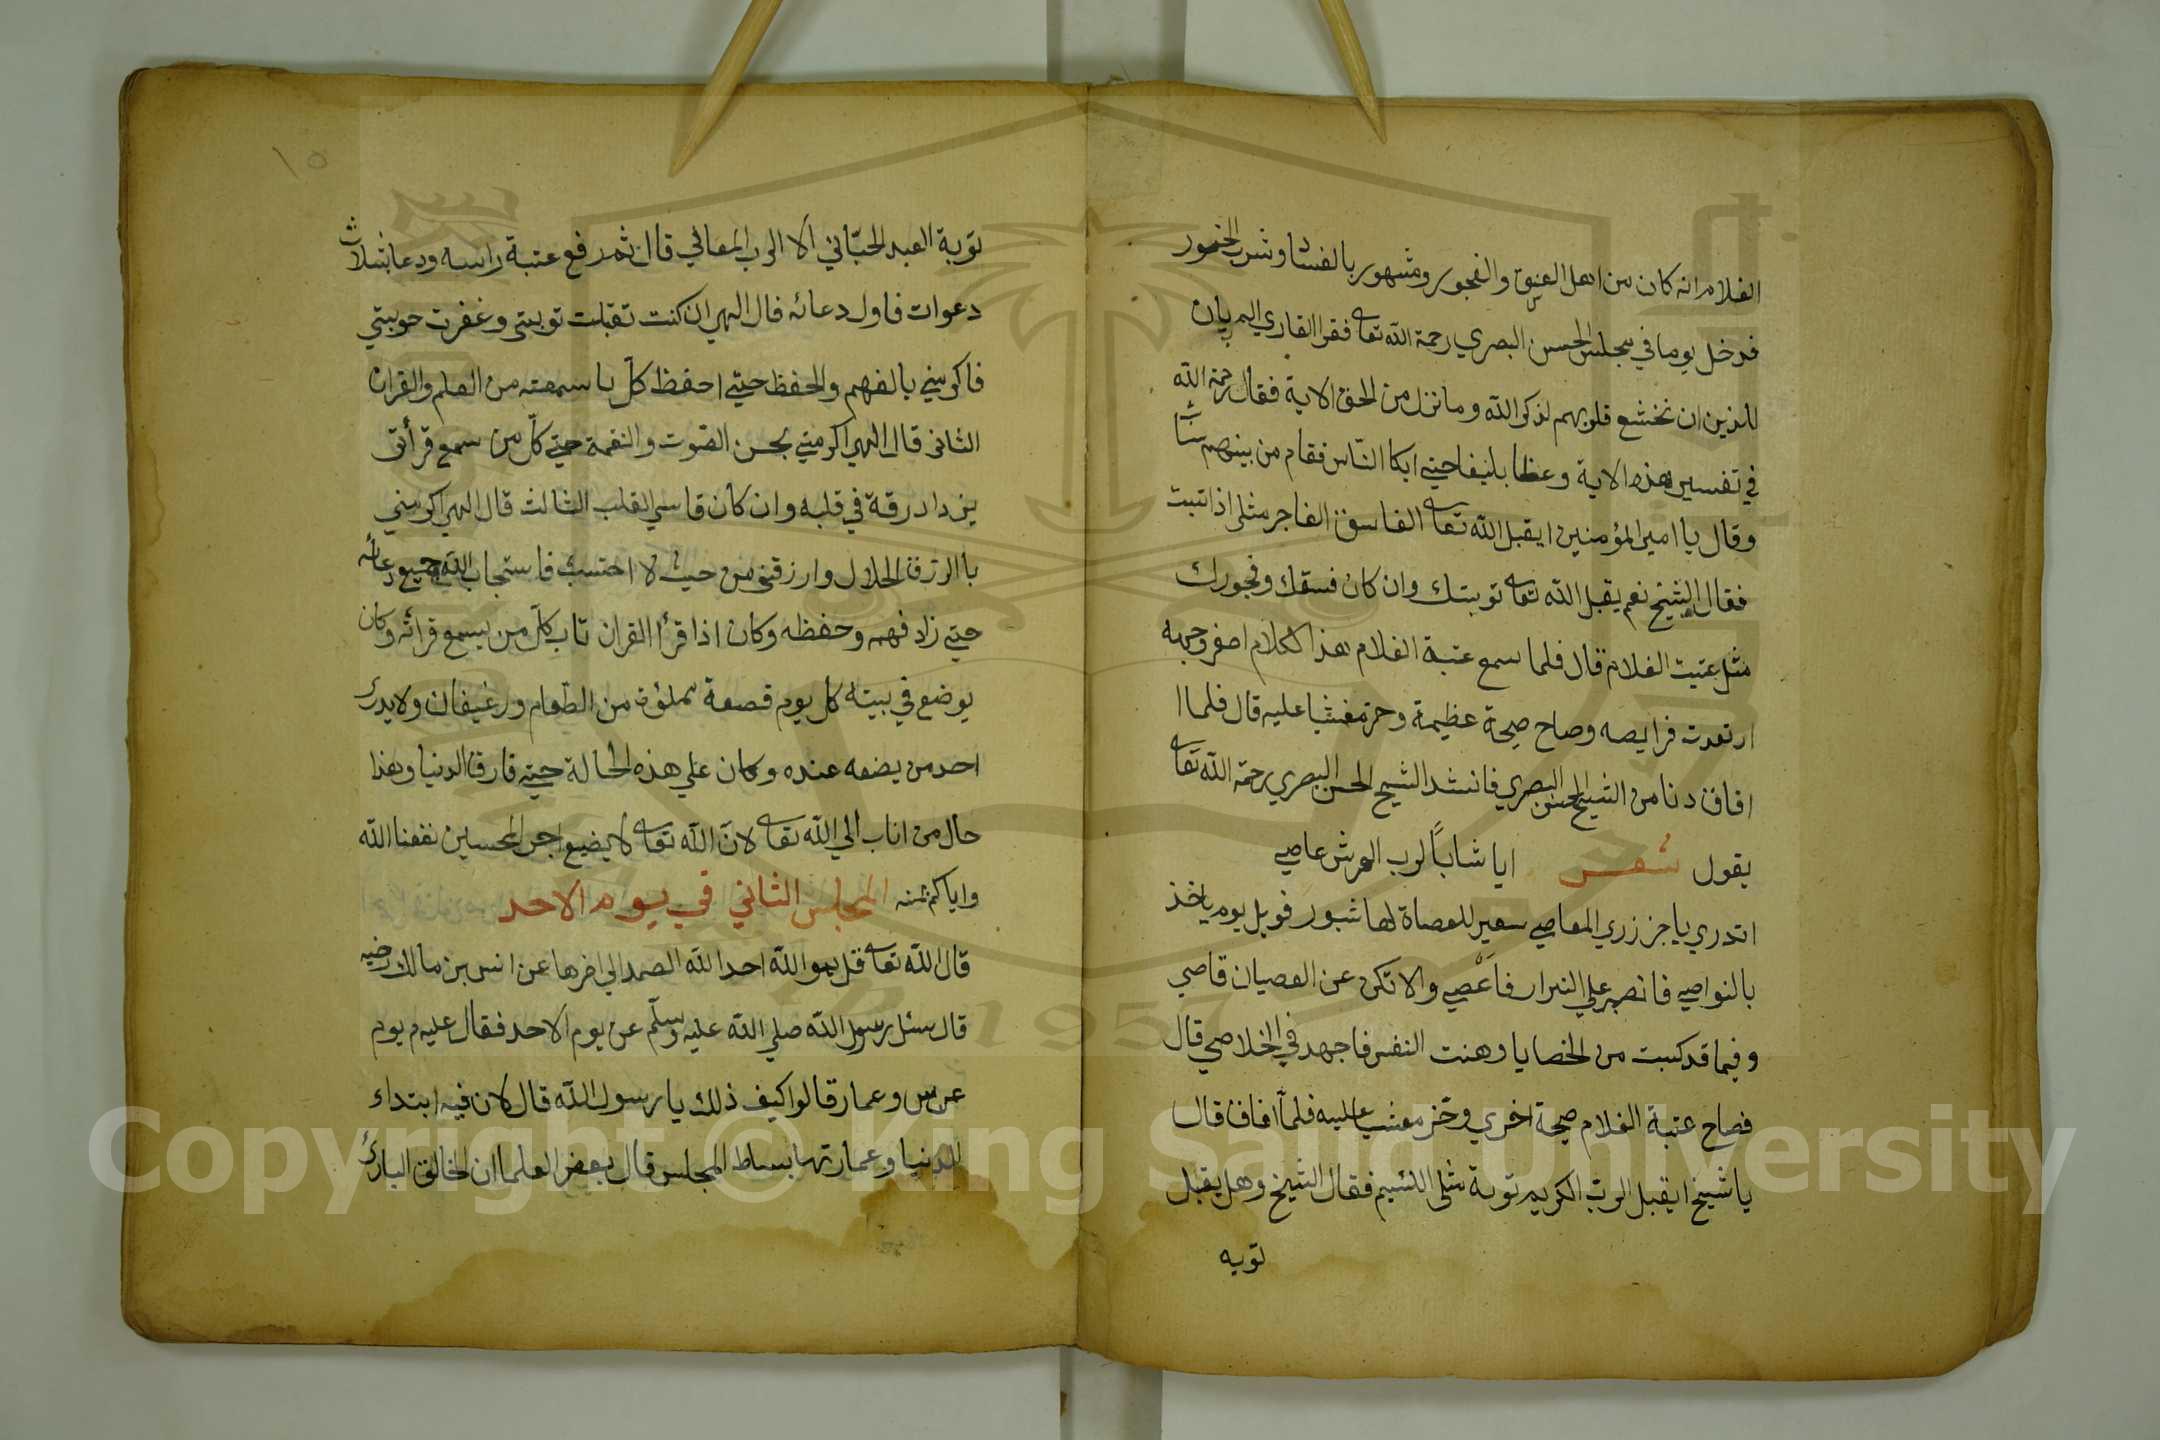 الغلام انه كان من اهل الفسق والفجور ومشهور بالفساد وشرب الخمور
فدخل يوما في مجلس الحسن البصري رحمة الله تعا فقرا القاري الم يان
للذين ان تخشع قلوبهم لذكر الله وما نزل من الحق الاية فقال رحمة الله
في تفسير هذه الاية وعظا بليغا حتي ابكا الناس فقام من بينهم شاب
وقال يا امير المؤمنين ايقبل الله تعا الفاسق الفاجر مثلي اذا تبت
فقال الشيخ نعم يقبل الله تعا توبتك وان كان فسقك وفجورك
مثل عتبت الغلام قال فلما سمع عتبة الغلام هذا الكلام اصفر وجهه
ارتعدت فرايصه وصاح صيحة عظيمة وخر مغشيا عليه قال فلما ا
افاق دنا من الشيخ الحسن البصري فانشد الشيخ الحسن البصري رحمة الله تعا
يقول شعر ايا شابا لرب العرش عاصي
اتدري يا جزري المعاصي سعير للعصاة لها ثبور فويل يوم ياخذ
بالنواصي فانصبر علي النيران فاعصي والا تكن عن العصيان قاصي
وفيما قد كسبت من الخصايا وهنت النفس فاجهد في الخلاصي قال
فصاح عتبة الغلام صيحة اخري وخر مغشي عليه فلما افاق قال
يا شيخ ايقبل الرب الكريم توبة مثلي اللئيم فقال الشيخ وهل يقبل
توبه
١٥
توبة العبد الجاني الا الرب المعالي قال ثم رفع عتبة راسه ودعا بثلاث
دعوات فاول دعائه قال الهي ان كنت تقبلت توبتي وغفرت حوبتي
فاكرمني بالفهم والحفظ حتي احفظ كل ما سمعته من العلم والقران
الثاني قال الهي اكرمني بحسن الصوت والنغمة حتي كل من سمع قرأتي
يزداد رقة في قلبه وان كان قاسي القلب الثالث قال الهي اكرمني
بالرزق الحلال وارزقني من حيث لا احتسب فاستجاب الله جميع دعائه
حتي زاد فهمه وحفظه وكان اذا قرأ القران تاب كل من يسمع قرائه وكان
يوضع في بيته كل يوم قصعة مملؤة من الطعام ورغيفان ولا يدرك
احد من يضعه عنده وكان علي هذه الحالة حتي فارق الدنيا وهذا
حال من اناب الي الله تعا لان الله تعا لا يضيع اجر المحسنين نفعنا الله
واياكم بمنه المجلس الثاني في يوم الاحد
قال الله تعا قل هو الله احد الله الصمد الي اخرها عن انس بن مالك رضيه
قال سئل رسول الله صلي الله عليه وسلم عن يوم الاحد فقال عليه م يوم
غرس وعمار قالوا كيف ذلك يا رسول الله قال لان فيه ابتداء
الدنيا وعمارتها بساط المجلس قال بعض العلما ان الخالق البارئ
Copyright © King Saud University
1957